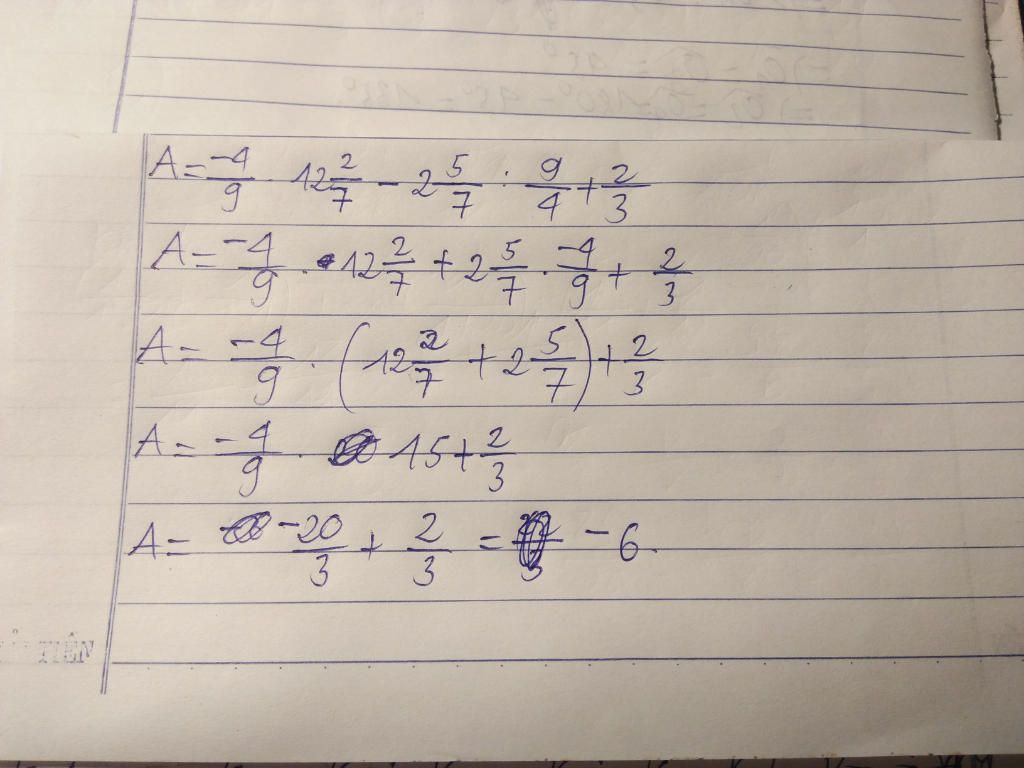 A = -4/9 . 12 2/7 - 2 5/7 : 9/4 + 2/3
A = -4/9 . 12 2/7 + 2 5/7 . -4/9 + 2/3
A = -4/9 . (12 2/7 + 2 5/7) + 2/3
A = -4/9 . 15 + 2/3
A = -20/3 + 2/3 = -6.
TIÊN